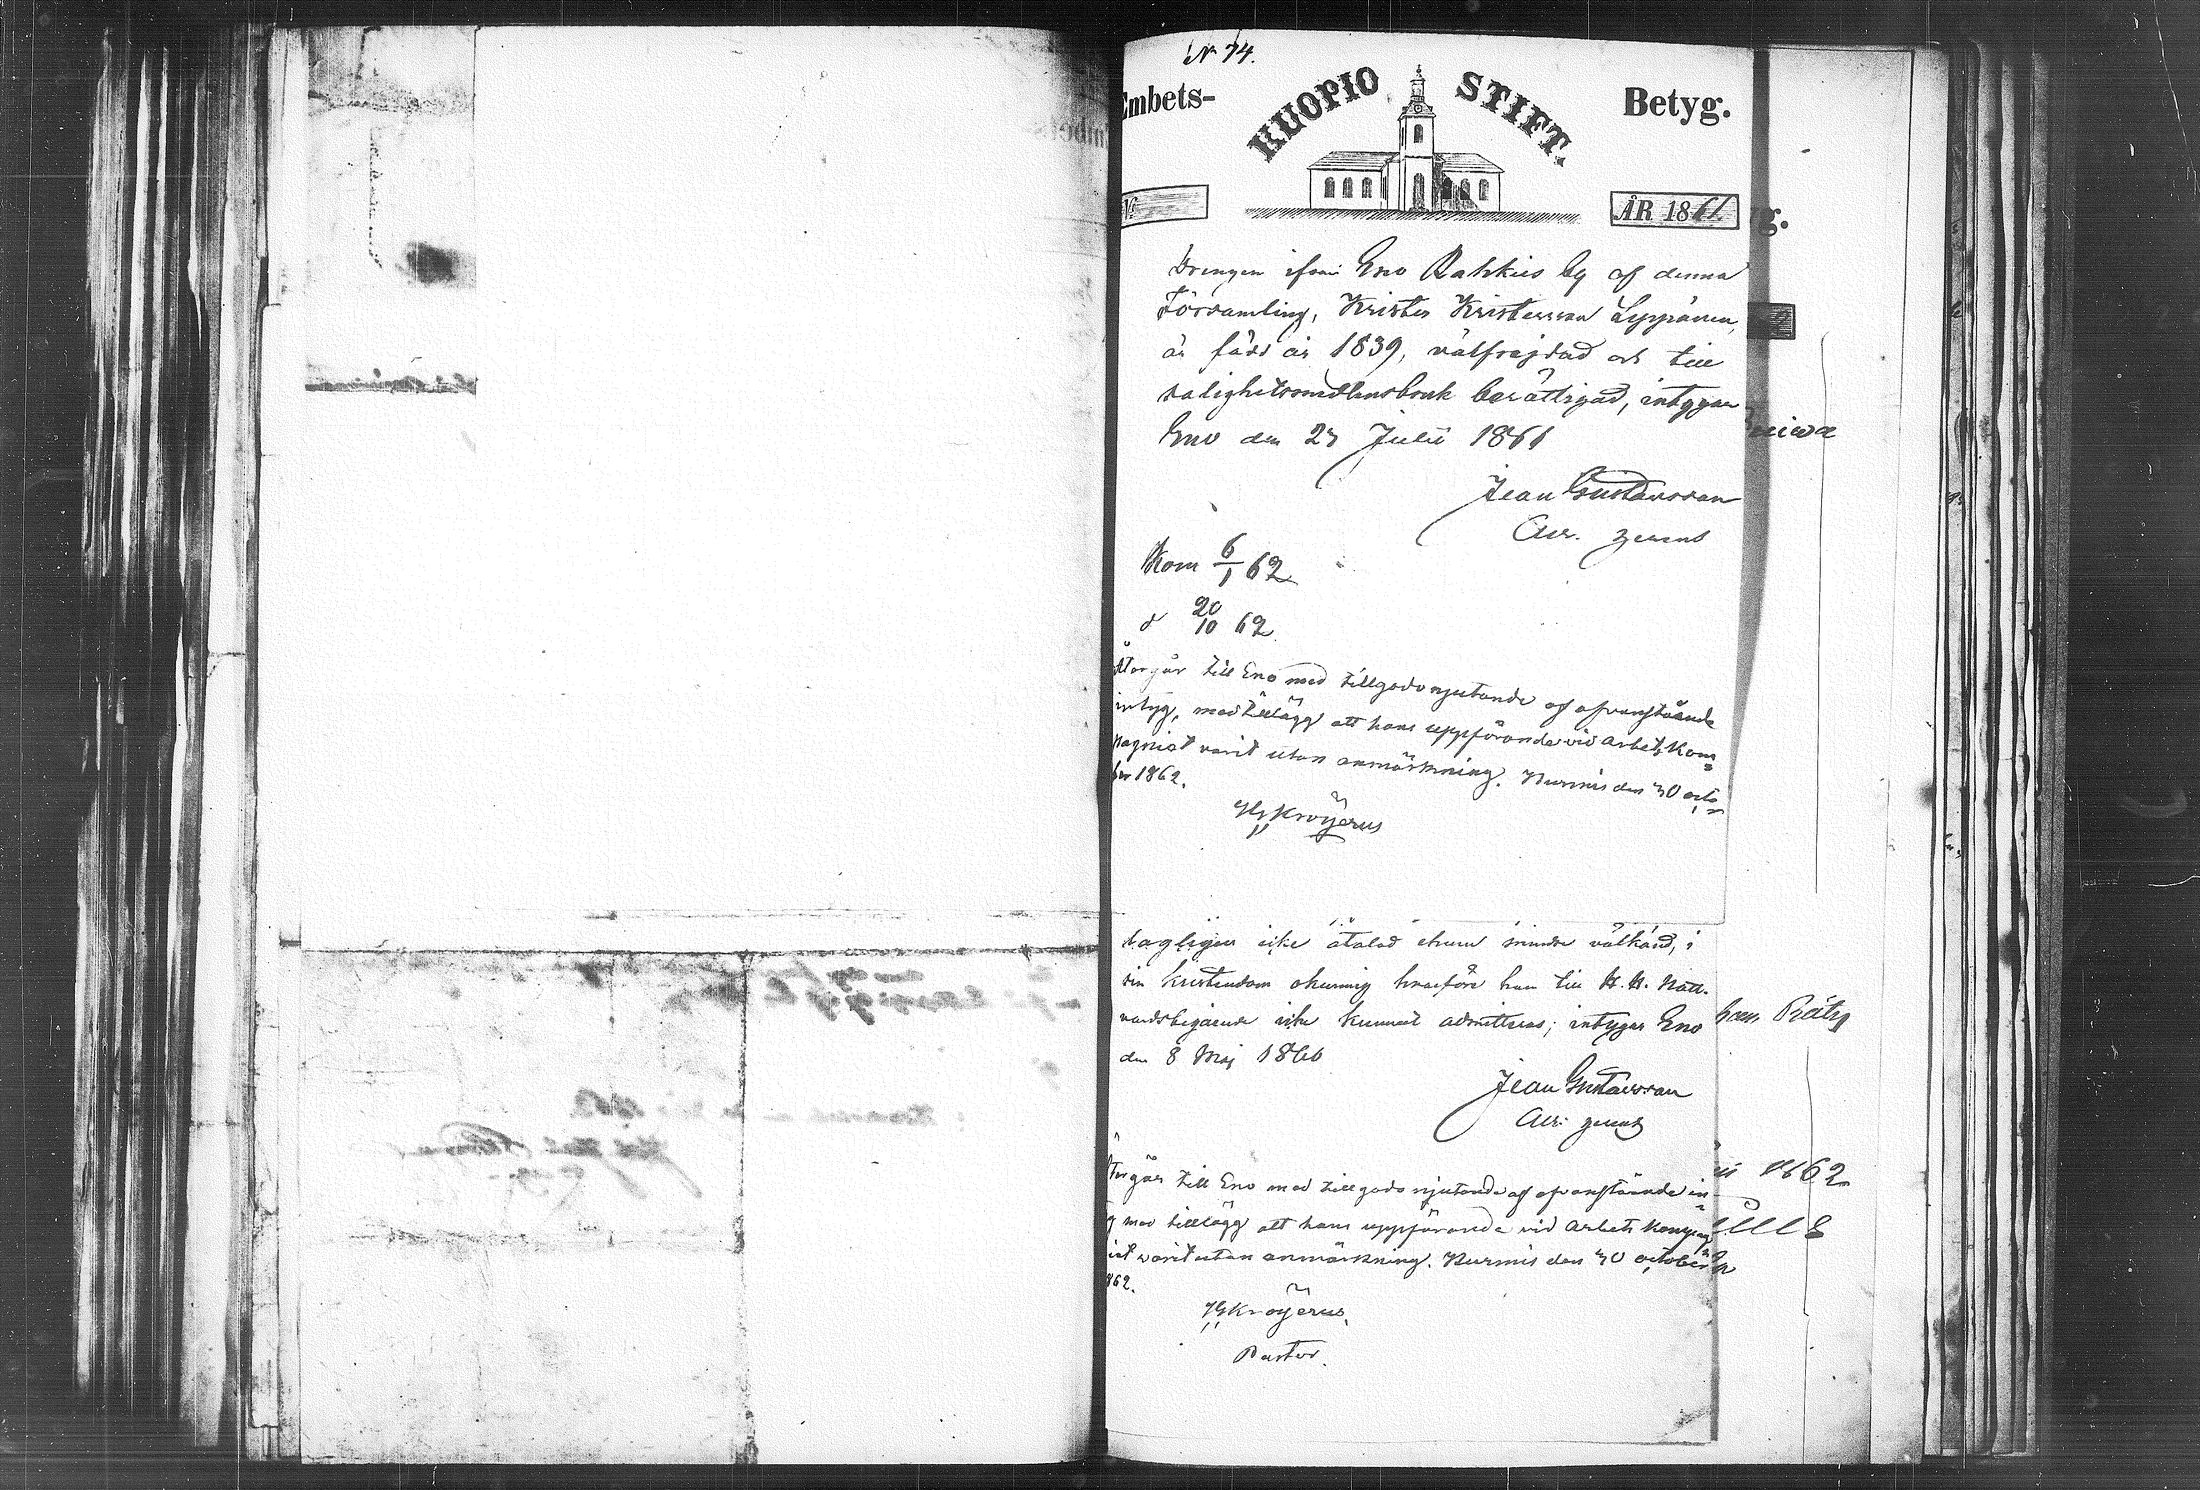 N 74.
Embets-
KUOPIO STIFT.
Betyg.
N:
ÅR 1861.
Drengen ifrån Eno Rahkis by af denna
Församling, Krister Kristersson Lyppönen,
är född år 1839, välfrejdad och till
salighetsmedlensbruk berättigad, intygar
Eno den 23 Julii 1861
Jean Gustavsson
Kom 6/1 62
d 20/10 62
Återgår till Eno med tillgodonjutande af ofvanstående
intyg, med tillägg att hans uppförande vid Arbets Kom=
pagniet varit utan anmärkning. Nurmis den 30 octo=
ber 1862.
HG Kroÿerus
dagligen icke åtalad ehuru mindre välkänd, i
sin kristendom okunnig hvarföre han till H. H. Natt-
vardsbegående icke kunnat admitteras; intygar Eno
den 8 Maj 1860
Jean Gustavsson
Återgår till Eno med tillgodonjutande af ofvanstående in=
g med tillägg att hans uppförande vid Arbets Kompag=
iet varit utan anmärkning. Nurmis den 30 october
862.
HG Kroÿerus,
Pastor.
1862